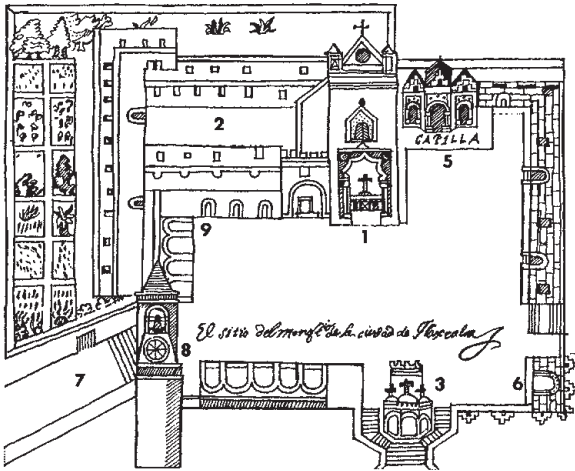 2
CAPILLA
5
1
9
El sitio del monqº de la ciudad de Tlaxcala
8
3
6
7